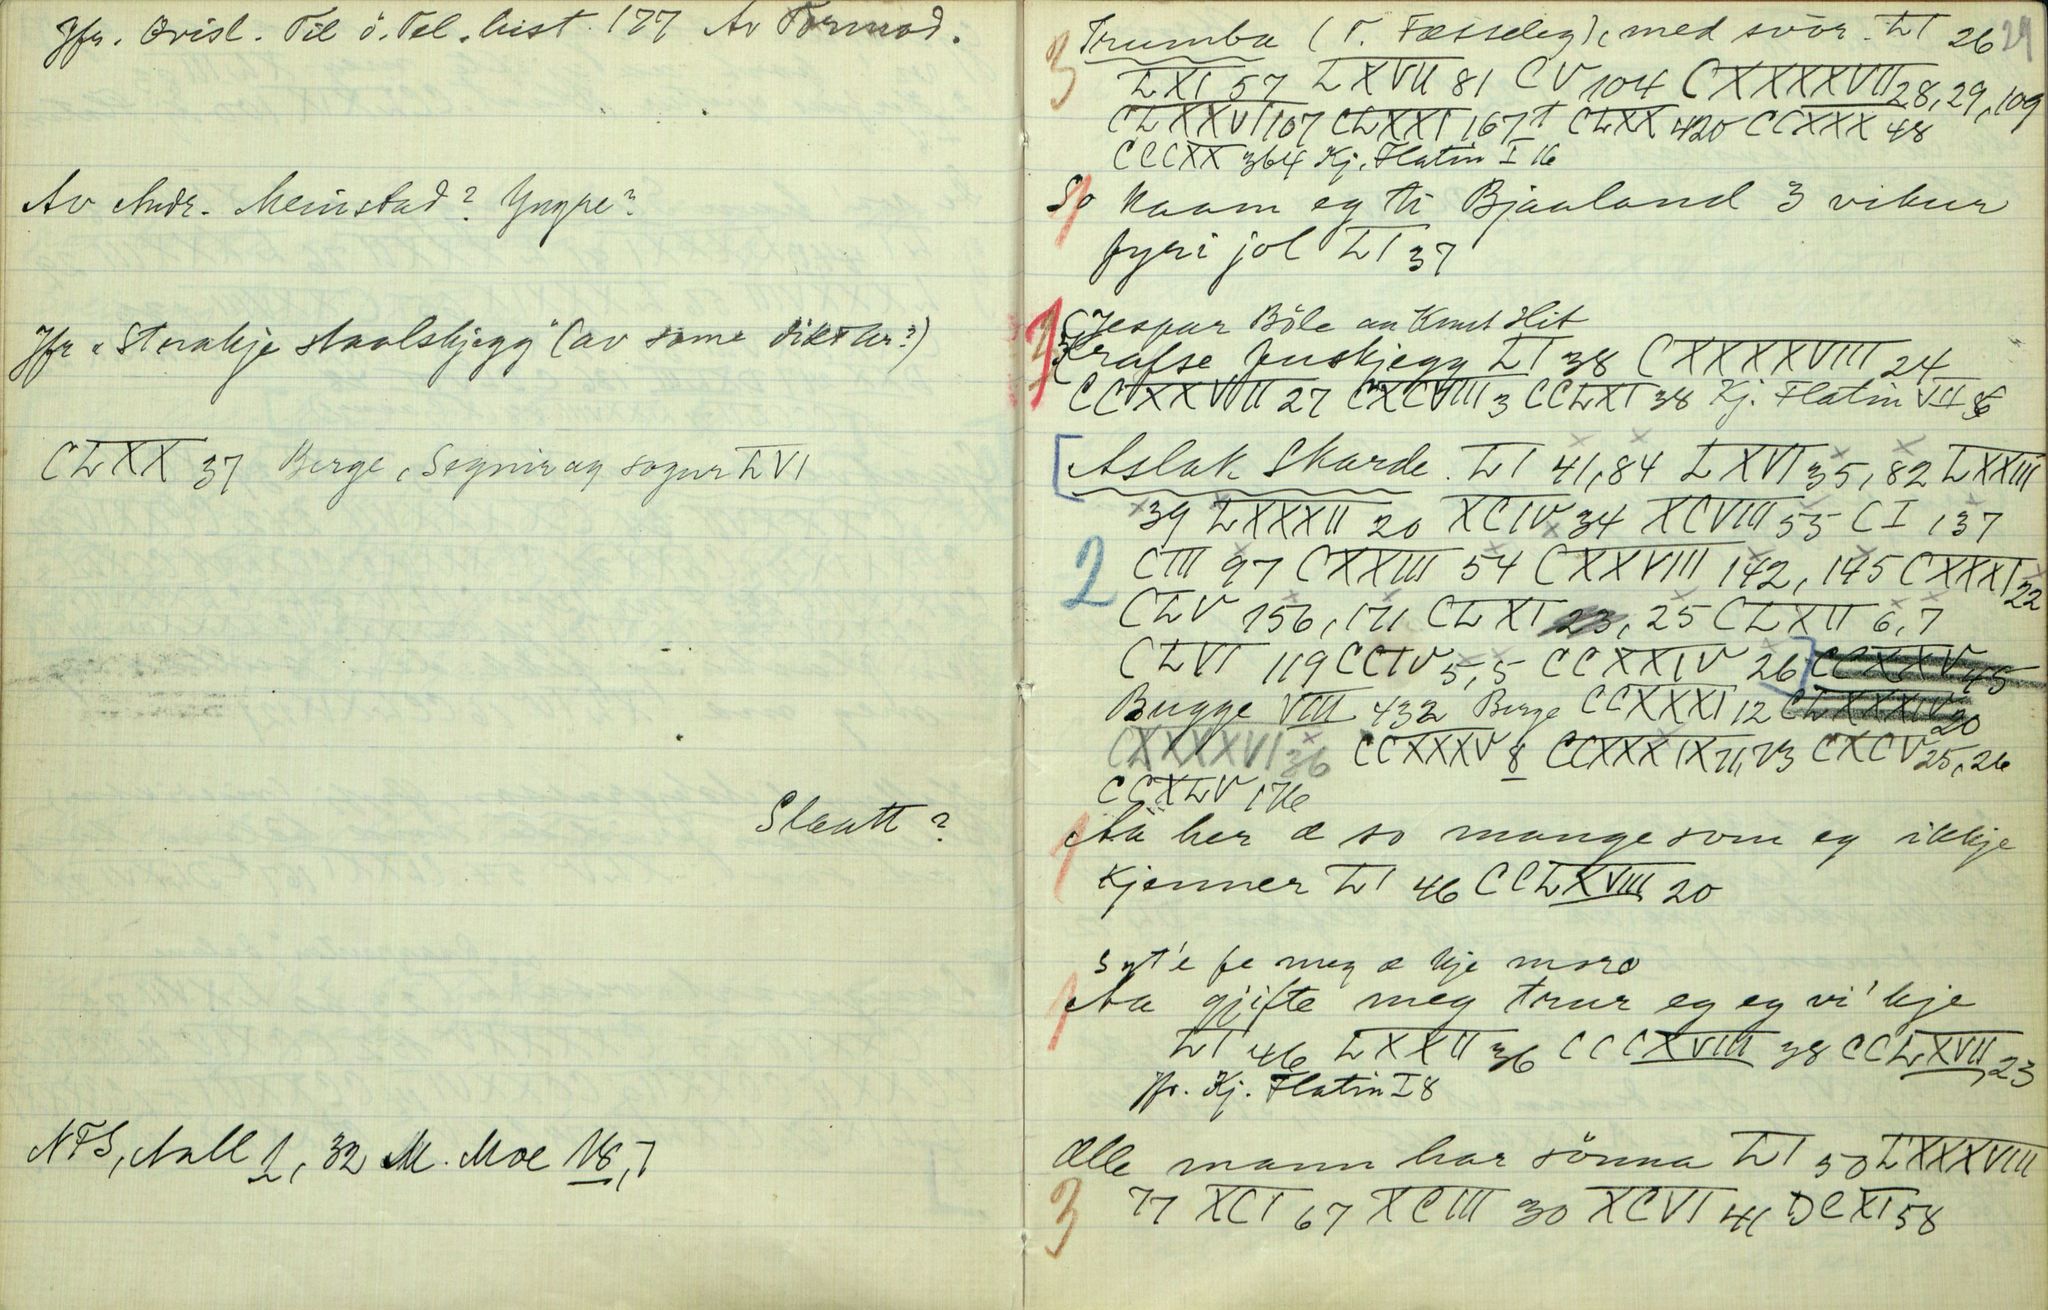 Jfr. Qvisl. Til ö. Tel. hist. 177 Av Tormod.
Av Andr. Meinstad? Yngre?
Jfr "Sterakje staalskjegg" (av same diktar?)
CLXX 37 Berge, Segnir og sogur LVI
Slaatt?
NFS, Aall 1, 32 M. Moe 18, 7
29
Trumba (T. Fæsseleg), med svör. LI 26
LXI 57 LXVII 81 CV 104 CXXXXVII 28, 29, 109
CLXXVI 107 CLXXI 167 CLXX 420 CCXXX 48
CCCXX 364 Kj. Flatin I 16
So kaam eg ti Bjaaland 3 vikur
fyri jol LI 37
Jespar Böle au Knut Hit
Krafse fuskjegg LI 38 CXXXXVIII 24
CCXXVII 27 CXCVIII 3 CCLXI 38 Kj. Flatin VII 6
Aslak Skarde. LI 41, 84 LXVI 35, 82 LXXIII
39 LXXXII 20 XCIV 34 XCVIII 55 CI 137
CIII 97 CXXIII 54 CXXVIII 142, 145 CXXXI 22
CLV 156, 171 CLXI 23, 25 CLXII 6, 7
CLVI 119 CCIV 5, 5 CCXXIV 26 CCXXV 45
Bugge VIII 432 Berge CCXXXI 12 CLXXXIV 20
CLXXXVI 36 CCXXXV 8 CCXXXIX 71, 73 CXCV 25, 26
CCXLV 176
Aa her æ so mange som eg ikkje
kjenner LI 46 CCLXVIII 20
syt'e fe meg æ kje moro
Aa gjifte meg trur eg eg vi' kje
LI 46 LXXII 36 CCCXVIII 38 CCLXVII 23
Jfr. Kj. Flatin I 8
Alle mann har sönna LI 50 LXXXVIII
77 XCI 67 XCIII 30 XCVI 41 DCXI 58